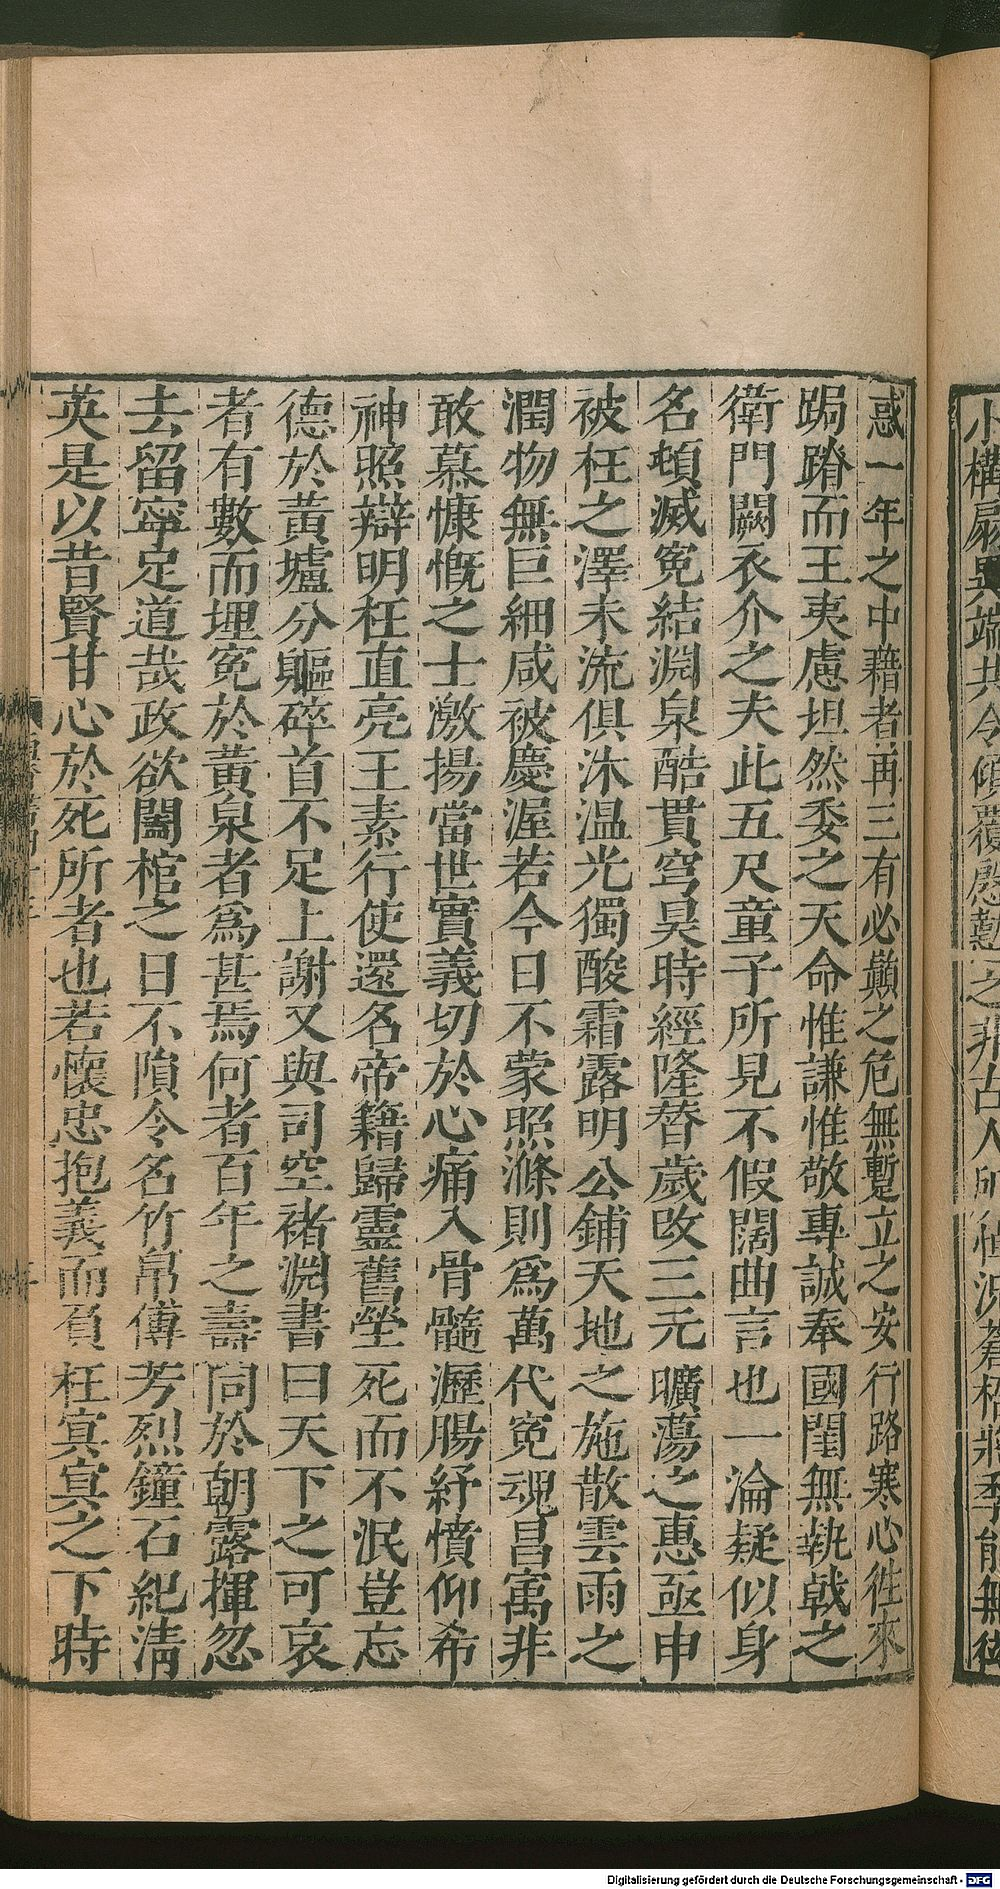 惑一年之中藉者再三有必顛之危無蹔立之安行路寒心徃來
跼蹐而王夷慮坦然委之天命惟謙惟敬專誠奉國閨無執戟之
衛門闕衣介之夫此五尺童子所見不假闊曲言也一淪疑似身
名頓滅寃結淵泉酷貫穹昊時經隆替歲改三元曠蕩之惠亟申
被枉之澤未流俱沐温光獨酸霜露明公鋪天地之施散雲雨之
潤物無巨細咸被慶渥若今日不蒙照滌則爲萬代寃魂昌㝢非
敢慕慷慨之士激揚當世實義切於心痛入骨髓瀝腸紓憤仰希
神照辯明枉直亮王素行使還名帝籍歸靈舊塋死而不泯豈忘
德於黃壚分軀碎首不足上謝又與司空褚淵書曰天下之可哀
者有數而埋寃於黃泉者爲甚焉何者百年之壽同於朝露揮忽
去留寜足道哉政欲闔棺之日不隕令名竹帛傳芳烈鐘石紀清
英是以昔賢甘心於死所者也若懷忠抱義而負枉㝠㝠之下時
Digitalisierung gefördert durch die Deutsche Forschungsgemeinschaft - DFG